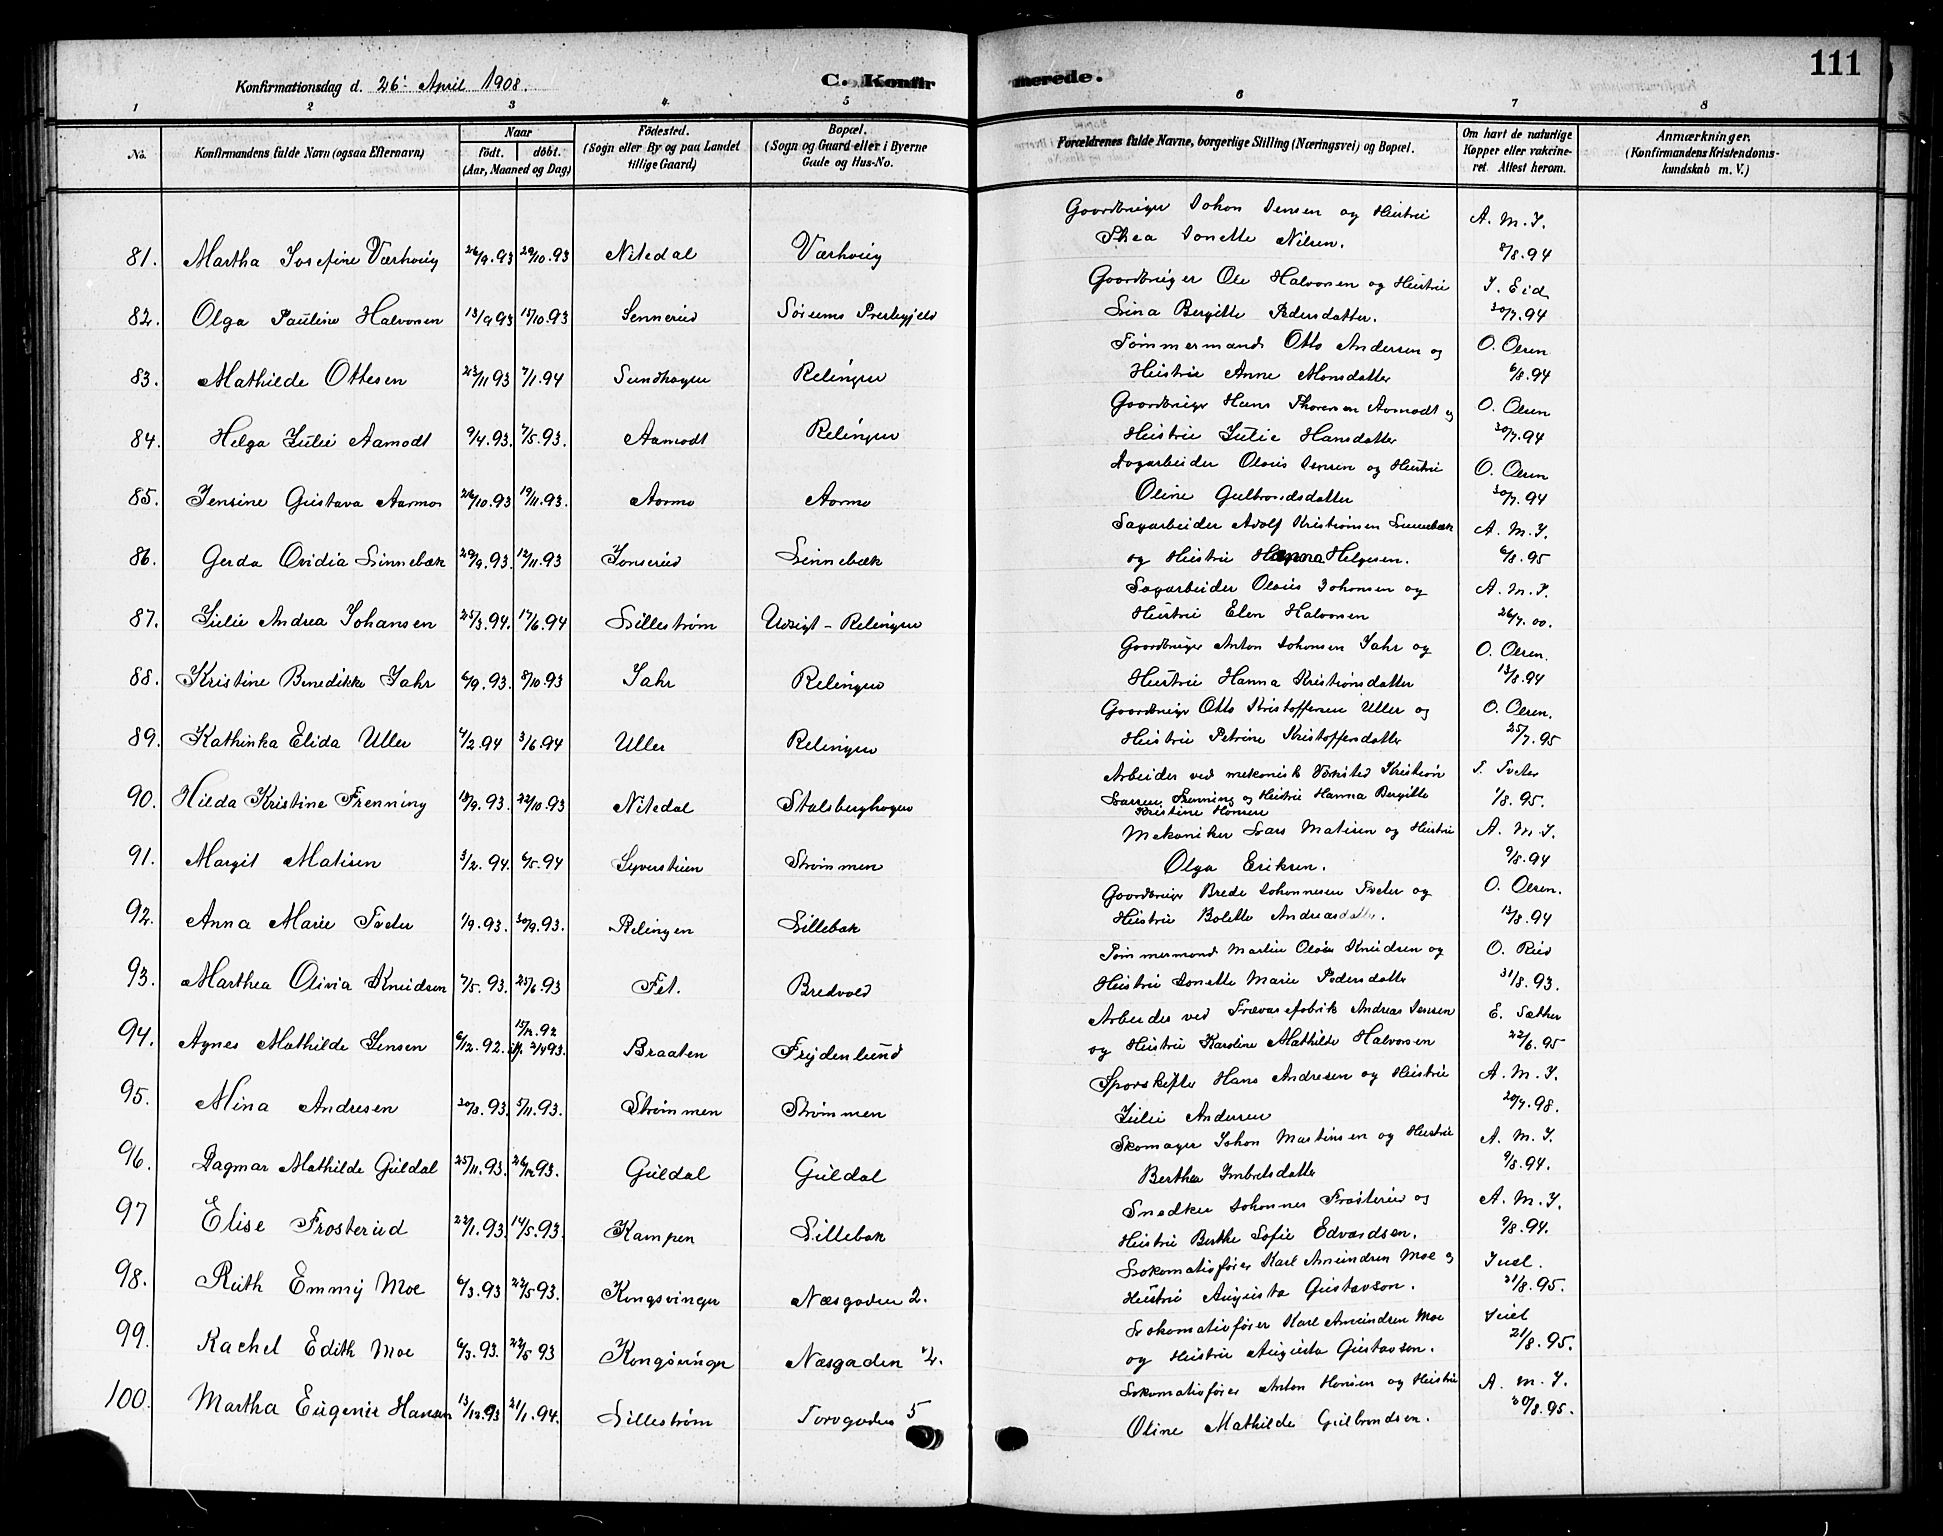 111
Konfirmationsdag d. 26' April 1908. C. Konfirmerede.
1 2 3 4 5 6 7 8
No. Konfirmandens fulde Navn (ogsaa Efternavn) Naar født. døbt. (Aar, Maaned og Dag) Fødested. (Sogn eller By og paa Landet tillige Gaard) Bopæl. (Sogn og Gaard eller i Byerne Gade og Hus-No. Forældrenes fulde Navne, borgerlige Stilling (Næringsvei) og Bopæl. Om havt de naturlige Kopper eller vakcineret. Attest herom. Anmærkninger. (Konfirmandens Kristendomskundskab m. V.)
81. Martha Josefine Værhveiy 26/9.93 29/10.93 Nitedal Værhveiy Gaardbruger Johan Jensen og Hustru A. M. J.
Thea Jonette Nilsen. 8/8.94
82. Olga Pauline Halvorsen 13/9 93 15/10.93 Sennerud Sørums Prestegjeld Gaardbruger Ole Halvorsen og Hustru J. Eid
Lina Bergitte Pedersdatter. 30/7.94
83. Mathilde Ottesen 23/11 93 7/1.94 Sundhagen Relingen Tømmermand Otto Andersen og O. Olsen
Hustru Anne Monsdatter 6/8.94
84. Helga Julie Aamodt 9/4.93. 7/5.93. Aamodt Relingen Gaardbruger Hans Thoresen Aamodt og O. Olsen
Hustru Julie Hansdatter 30/7.94
85. Jensine Gustava Aarmo 26/10.93 19/11.93. Aarmo Aarmo Sagarbeider Olaus Jensen og Hustru O. Olsen
Oline Gulbrandsdatter 30/7.94
86. Gerda Ovidia Linnebæk 29/9.93. 12/11.93 Jonserud Linnebæk Sagarbeider Adolf Kristiansen Linnebæk A. M. J.
og Hustru Hanna Helgesen. 6/8.95
87. Julie Andrea Johansen 25/3.94. 17/6.94 Lillestrøm Udsigt - Relingen Sagarbeider Olaus Johansen og A. M. J.
Hustru Elen Halvorsen 26/7.00.
88. Kristine Benedikke Jahr 6/9.93. 8/10.93 Jahr Relingen Gaardbruger Anton Johansen Jahr og O. Olsen.
Hustru Hanna Kristiansdatter 13/8.94
89. Kathinka Elida Uller 4/2.94 3/6.94 Uller Relingen Gaardbruger Otto Kristoffersen Uller og O. Olsen.
Hustru Petrine Kristoffersdatter 25/7.95
90. Hilda Kristine Frenning 18/9.93. 22/10.93 Nitedal Stalsberghagen Arbeider ved mekanisk Værksted Kristian T. Tveter
Larsen Frenning og Hustru Hanna Bergitte 1/8.95.
Kristine Hansen
91. Margit Matisen 3/2.94. 6/5.94 Syverstuen Strømmen Mekaniker Lars Matisen og Hustru A. M. J.
Olga Eriksen. 9/8.94
92. Anna Marie Tveter 1/9.93. 30/9.93. Relingen Lillebæk Gaardbruger Brede Johannesen Tveter og O. Olsen.
Hustru Bolette Andreasdatter. 13/8.94
93. Marthea Olivia Knudsen 7/5.93. 25/6.93 Fet. Bredvold Tømmermand Martin Olous Knudsen og O. Rud
Hustru Jonette Marie Pedersdatter 31/8.93.
94. Agnes Mathilde Jensen 6/12.92. 15/12.92 Braaten Frydenlund Arbeider ved Trævarefabrik Andreas Jensen E. Sæther
2/4 93. og Hustru Karoline Mathilde Halvorsen 22/6.95
95. Mina Andresen 20/8.93. 5/11.93. Strømmen Strømmen Sporskifter Hans Andresen og Hustru A. M. J.
Julie Andersen 20/7.98.
96. Dagmar Mathilde Guldal 25/11.93. 26/12.93. Guldal Guldal Skomager Johan Martinsen og Hustru A. M. J.
Berthea Imbretsdatter 9/8.94.
97 Elise Frosterud 22/1.93. 14/5.93. Kampen Lillebæk Snedker Johannes Frosterud og A. M. J.
Hustru Berthe Sofie Edvardsen. 9/8.94.
98. Ruth Emmy Moe 6/3.93 22/5.93. Kongsvinger Næsgaden 2. Lokomotivfører Karl Amundsen Moe og Juel.
Hustru Augusta Gustavson. 21/8.95.
99. Rachel Edith Moe 6/3.93. 22/5 93 Kongsvinger Næsgaden 2. Lokomotivfører Karl Amundsen Moe Juel
og Hustru Augusta Gustavson. 21/8.95.
100. Martha Eugenie Hansen 13/12.93 21/1.94. Lillestrøm Torvgaden 5 Lokomotivfører Anton Hansen og Hustru A. M. J.
Oline Mathilde Gulbrandsen. 30/8.95.